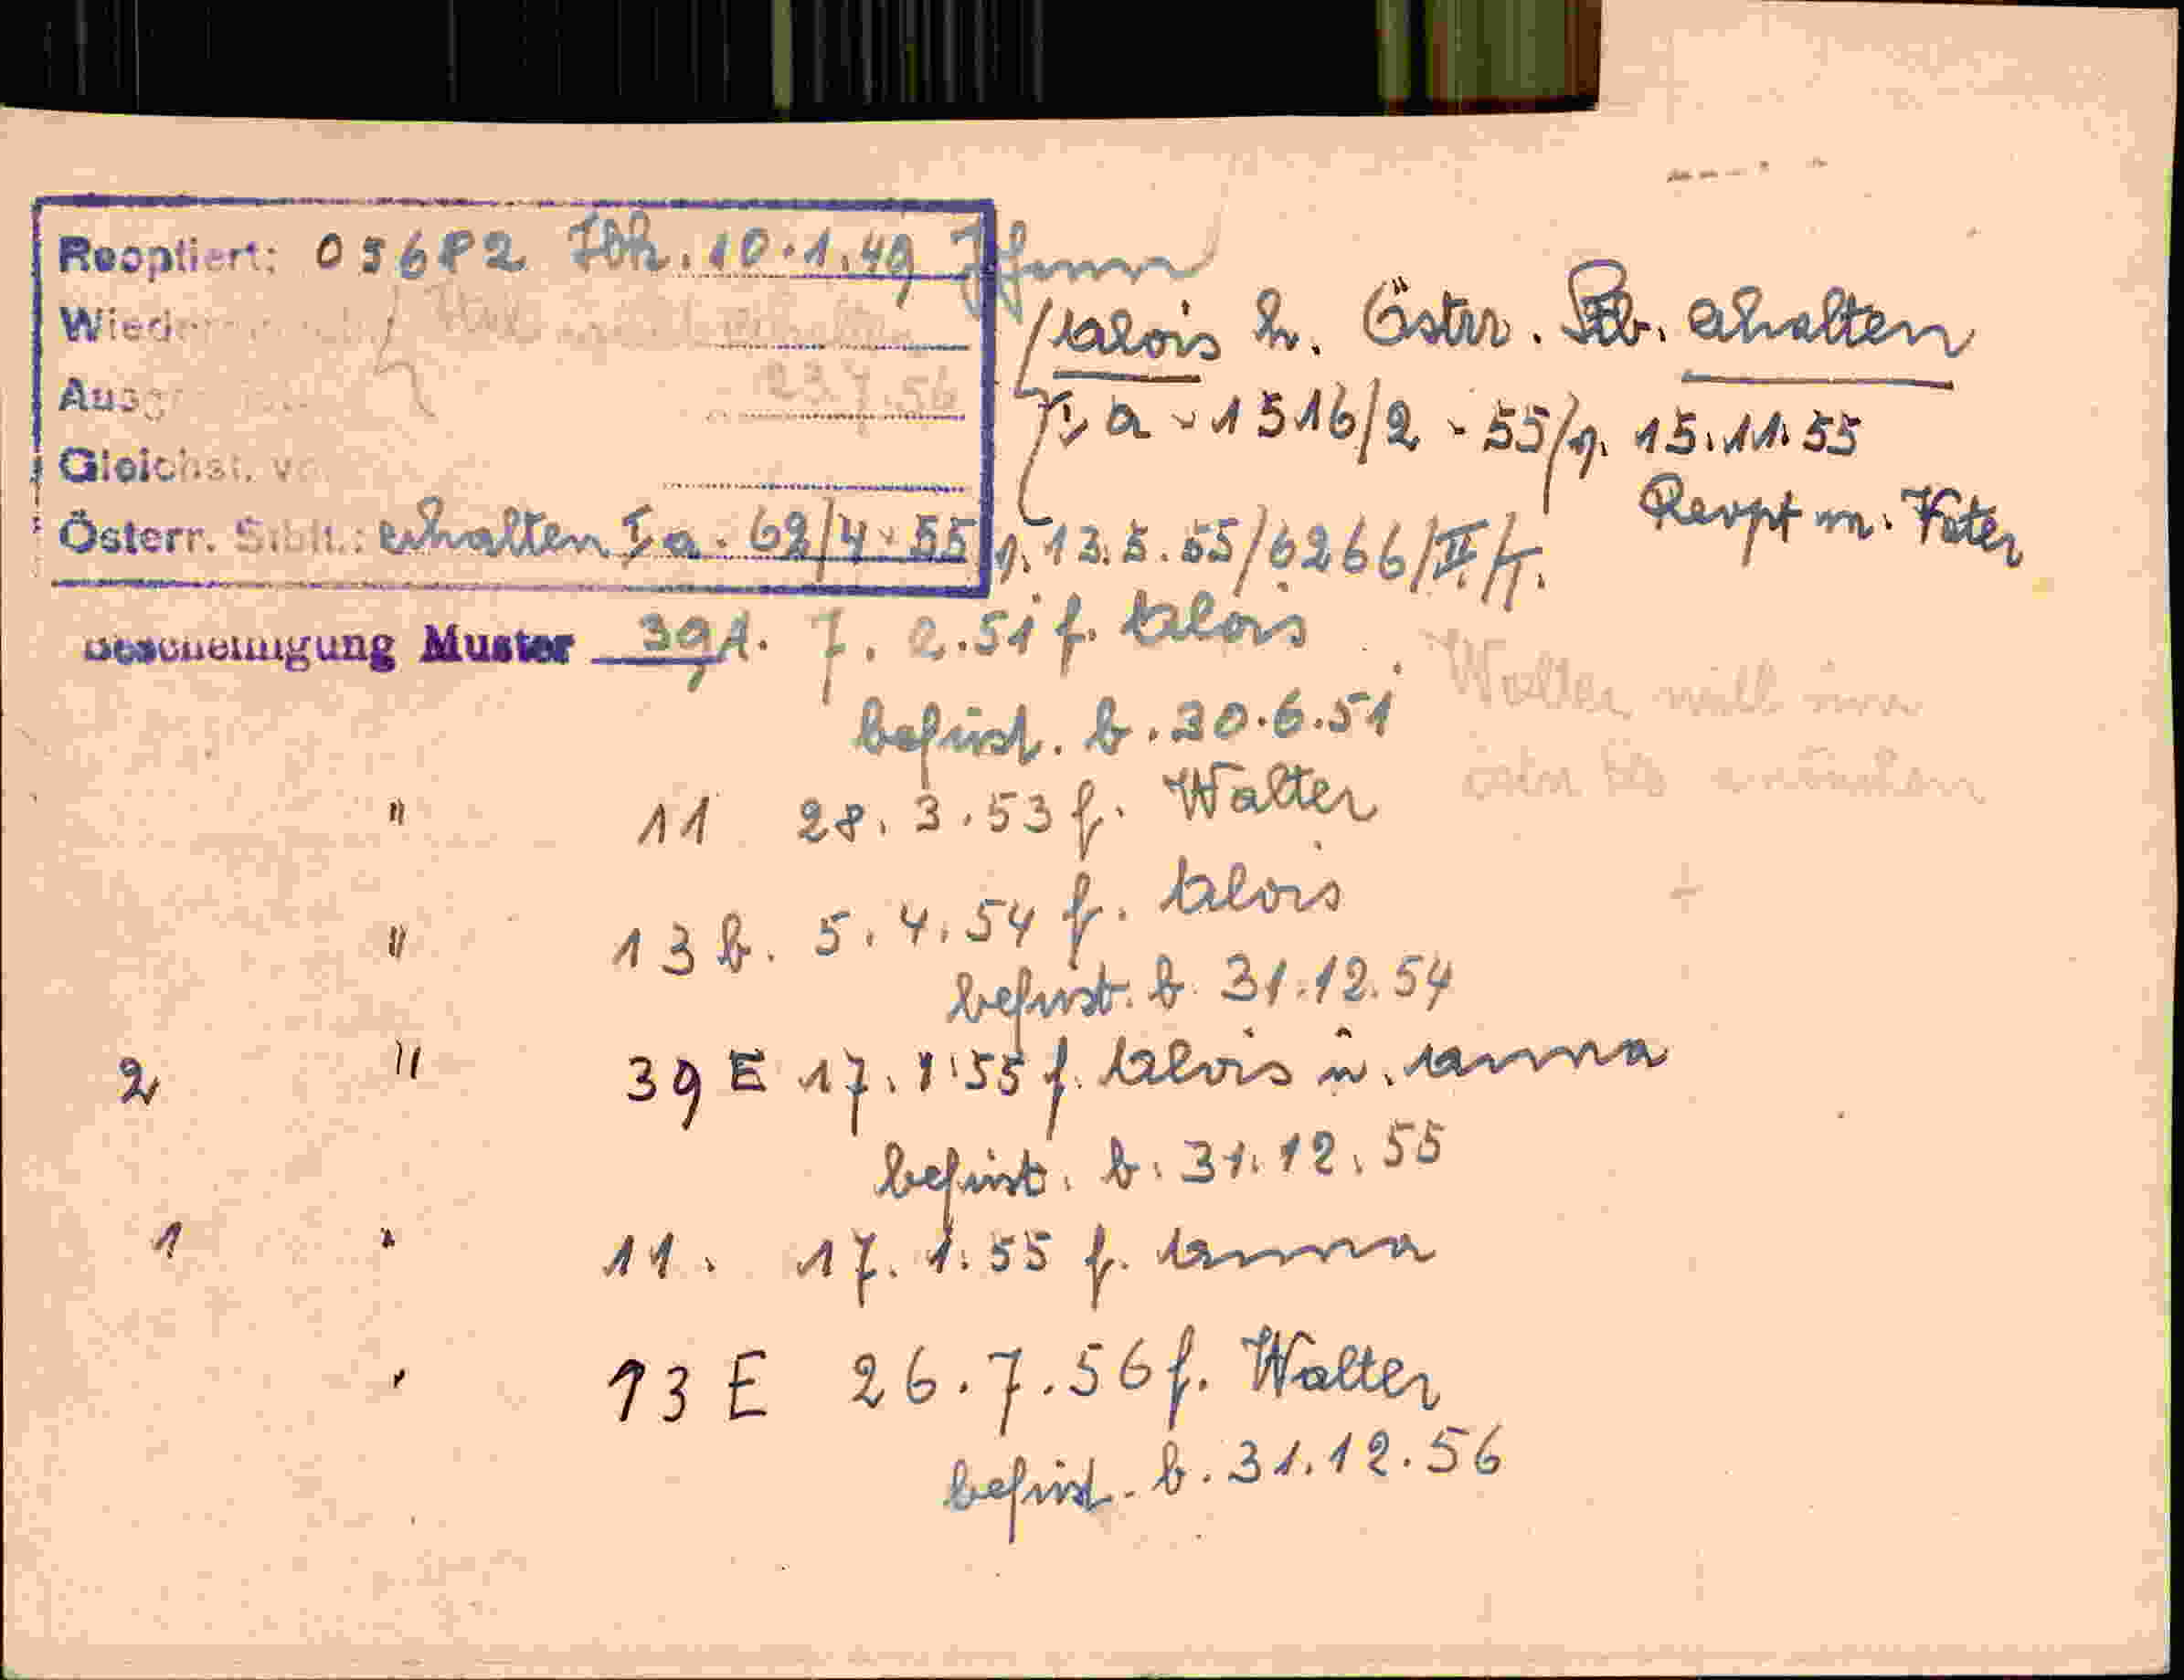 Reoptiert: 05682 Ibk. 10.1.49
Alois h. Östr. Stb. erhalten
Ia-1516/2-55/g. 15.11.55
Reopt m. Vater
23.7.56
Gleichst. v
Österr. Stblt.: erhalten Ia-62/4-55 g. 13.5.55/6266/II/
Bescheinigung Muster 39A. 7. 2.51 f. Alois
befrist. b. 30.6.51
Walter will
" 11 28. 3.53 f. Walter
" 13 b. 5.4.54 f. Alois
befrist. b. 31.12.54
2 " 39 E 17.1.55 f. Alois u. Anna
befrist. b. 31.12.55
1 " 11. 17.1.55 f. Anna
" 13 E 26.7.56 f. Walter
befrist. b. 31.12.56